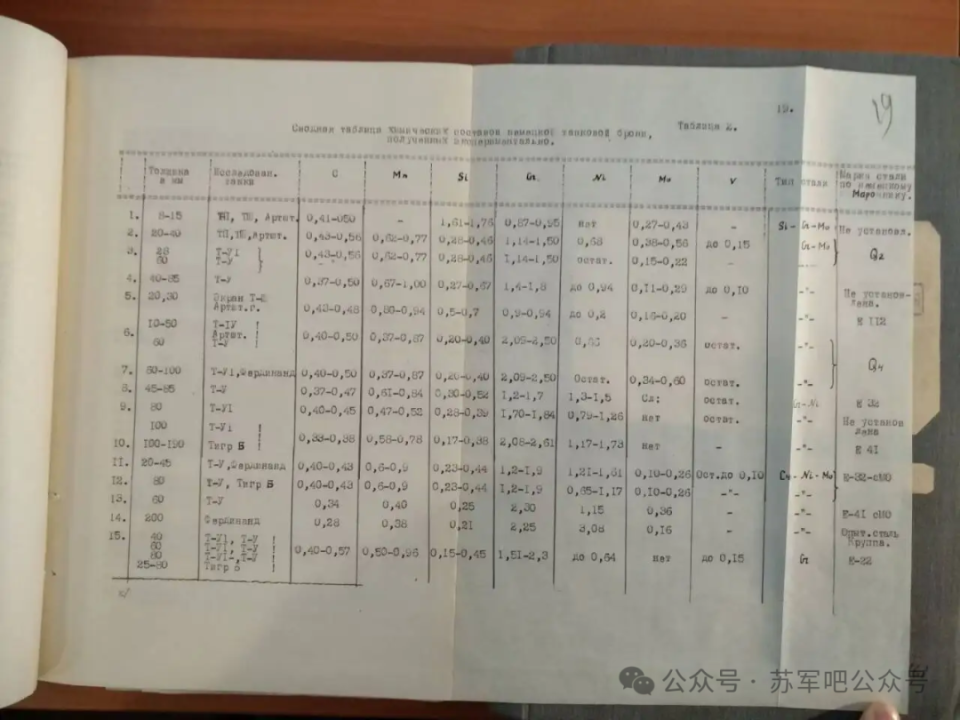 19.
29
Сводная таблица химических составов немецкой танковой брони, Таблица 2.
полученных экспериментально.
Толщина в мм Исследован. танки C Mn Si Cr Ni Mo V Тип стали Марка стали по немецкому Марочнику.
1. 8-15 ТШ, ТШ, Артот. 0,41-050 - 1,61-1,76 0,87-0,95 нет 0,27-0,43 - Si- Cr-Mo Не установл.
2. 20-40 ТШ,ТШ,Артот. 0,43-0,56 0,62-0,77 0,28-0,46 1,14-1,50 0,68 0,38-0,56 до 0,15 Cr-Mo
3. 28 Т-УI 0,43-0,56 0,62-0,77 0,28-0,46 1,14-1,50 остат. 0,15-0,22 - -"- Q2
60 Т-У
4. 40-85 Т-У 0,37-0,50 0,67-1,00 0,27-0,67 1,4-1,8 до 0,94 0,11-0,29 до 0,10 -"- Не установ-
лена.
5. 20,30 Экран
Артот.г. 0,43-0,48 0,80-0,94 0,5-0,7 0,9-0,94 до 0,2 0,16-0,20 - -"- E 112
10-50 Т-IУ !
6. Артот. ! 0,40-0,50 0,37-0,87 0,20-0,40 2,09-2,50 0,20-0,36 остат. -"- Q4
60 Т-У !
7. 60-100 Т-УI,Фердинанд 0,40-0,50 0,37-0,87 0,20-0,40 2,09-2,50 Остат. 0,34-0,60 остат. -"-
8. 45-85 Т-У 0,37-0,47 0,61-0,84 0,30-0,52 1,2-1,7 1,3-1,5 Сл: остат. Cr-Ni E 32
9. 80 Т-УI 0,40-0,45 0,47-0,52 0,28-0,39 1,70-1,84 0,79-1,26 нет остат. -"- Не установ
лена
100 Т-УI !
10. 100-190 Тигр Б ! 0,33-0,38 0,58-0,78 0,17-0,38 2,08-2,61 1,17-1,73 нет - -"- E 41
11. 20-45 Т-У,Фердинанд 0,40-0,43 0,6-0,9 0,23-0,44 1,2-1,9 1,21-1,61 0,10-0,26 Ост.до 0,10 Cr-Ni-Mo E-32-сМО
12. 80 Т-У, Тигр Б 0,40-0,43 0,6-0,9 0,23-0,44 1,2-1,9 0,65-1,17 0,10-0,26 -"- -"-
13. 60 Т-У 0,34 0,40 0,25 2,30 1,15 0,36 - -"- E-41 сМО
14. 200 Фердинанд 0,28 0,38 0,21 2,25 3,08 0,16 - -"- Опыт.сталь
Круппа.
15. 40 Т-УI, Т-У !
60 Т-УI, Т-У !
80 Т-УI, Т-У ! 0,40-0,57 0,50-0,96 0,15-0,45 1,51-2,3 до 0,64 нет до 0,15 Cr E-22
25-80 Тигр Б !
公众号 · 苏军吧公众号